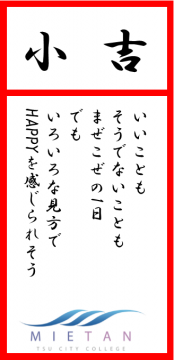 小吉
いいことも
そうでないことも
まぜこぜの一日
でも
いろいろな見方で
HAPPYを感じられそう
MIETAN
TSU CITY COLLEGE